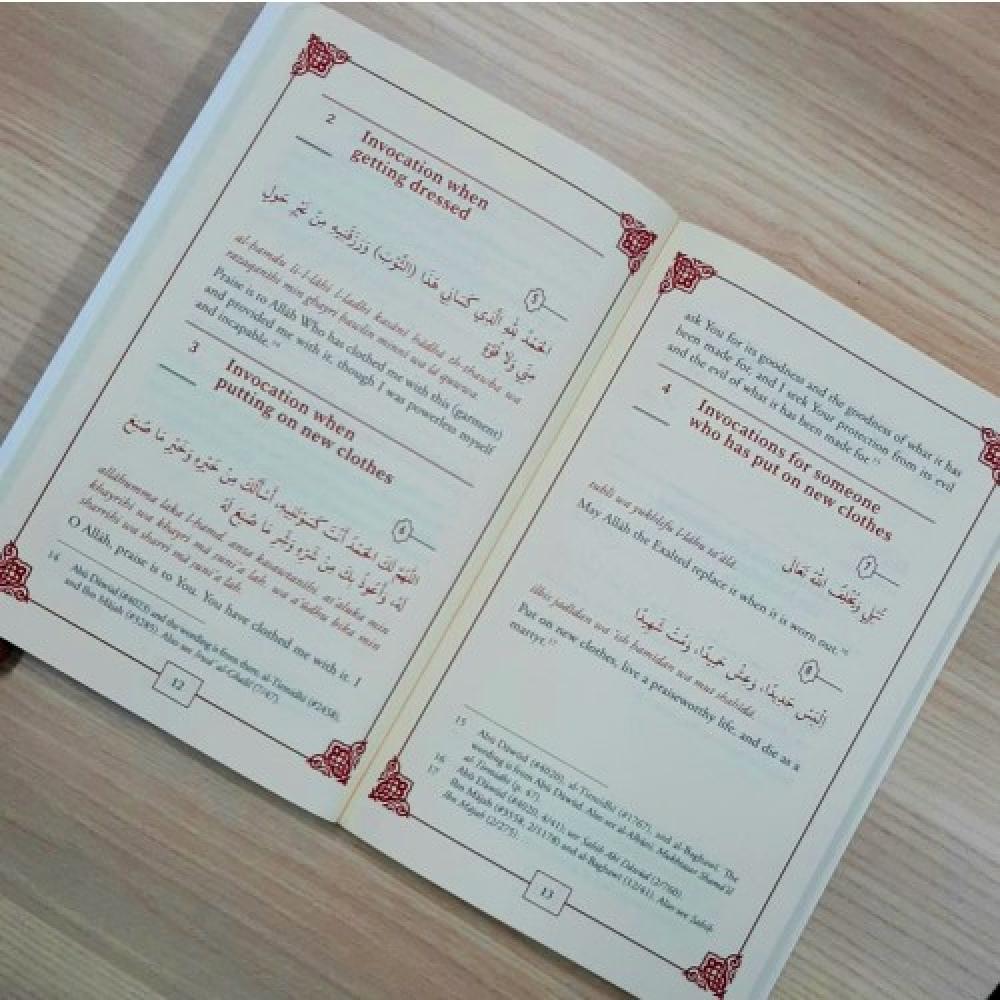 2
Invocation when
getting dressed
5
الحَمْدُ لِلَّهِ الَّذِي كَسَانِي هَذَا (الثَّوْبَ) وَرَزَقَنِيهِ مِنْ غَيْرِ حَوْلٍ
مِنِّي وَلَا قُوَّةٍ
al-ḥamdu li-l-lāhi l-ladhī kasānī hādhā th-thawba wa
razaqanīhi min ghayri ḥawlin minnī wa lā quwwa.
Praise is to Allāh Who has clothed me with this (garment)
and provided me with it, though I was powerless myself
and incapable.
3
Invocation when
putting on new clothes
6
اللَّهُمَّ لَكَ الحَمْدُ أَنْتَ كَسَوْتَنِيهِ، أَسْأَلُكَ مِنْ خَيْرِهِ وَخَيْرِ مَا صُنِعَ
لَهُ، وَأَعُوذُ بِكَ مِنْ شَرِّهِ وَشَرِّ مَا صُنِعَ لَهُ
allāhumma laka l-ḥamd, anta kasawtanīhi, as'aluka min
khayrihi wa khayri mā ṣuni'a lah, wa a'ūdhu bika min
sharrihi wa sharri mā ṣuni'a lah.
O Allāh, praise is to You. You have clothed me with it. I
14 Abū Dāwūd (#4023) and the wording is from them, al-Tirmidhī (#3458),
and Ibn Mājah (#3285). Also see Irwā' al-Ghalīl (7/47).
12
ask You for its goodness and the goodness of what it has
been made for, and I seek Your protection from its evil
and the evil of what it has been made for.15
4
Invocations for someone
who has put on new clothes
7
تُبْلِي وَيُخْلِفُ اللهُ تَعَالَى
tublī wa yukhlifu l-lāhu ta'ālā.
May Allāh the Exalted replace it when it is worn out.16
8
اِلْبَسْ جَدِيدًا، وَعِشْ حَمِيدًا، وَمُتْ شَهِيدًا
ilbis jadīdan wa 'ish ḥamīdan wa mut shahīdā.
Put on new clothes, live a praiseworthy life, and die as a
martyr.17
15 Abū Dāwūd (#4020), al-Tirmidhī (#1767), and al-Baghawī. The
wording is from Abū Dāwūd. Also see al-Albānī, Mukhtaṣar Shamā'il
al-Tirmidhī (p. 47).
16 Abū Dāwūd (#4020, 4/41); see Ṣaḥīḥ Abī Dāwūd (2/760).
17 Ibn Mājah (#3558, 2/1178) and al-Baghawī (12/41). Also see Ṣaḥīḥ
Ibn Mājah (2/275).
13